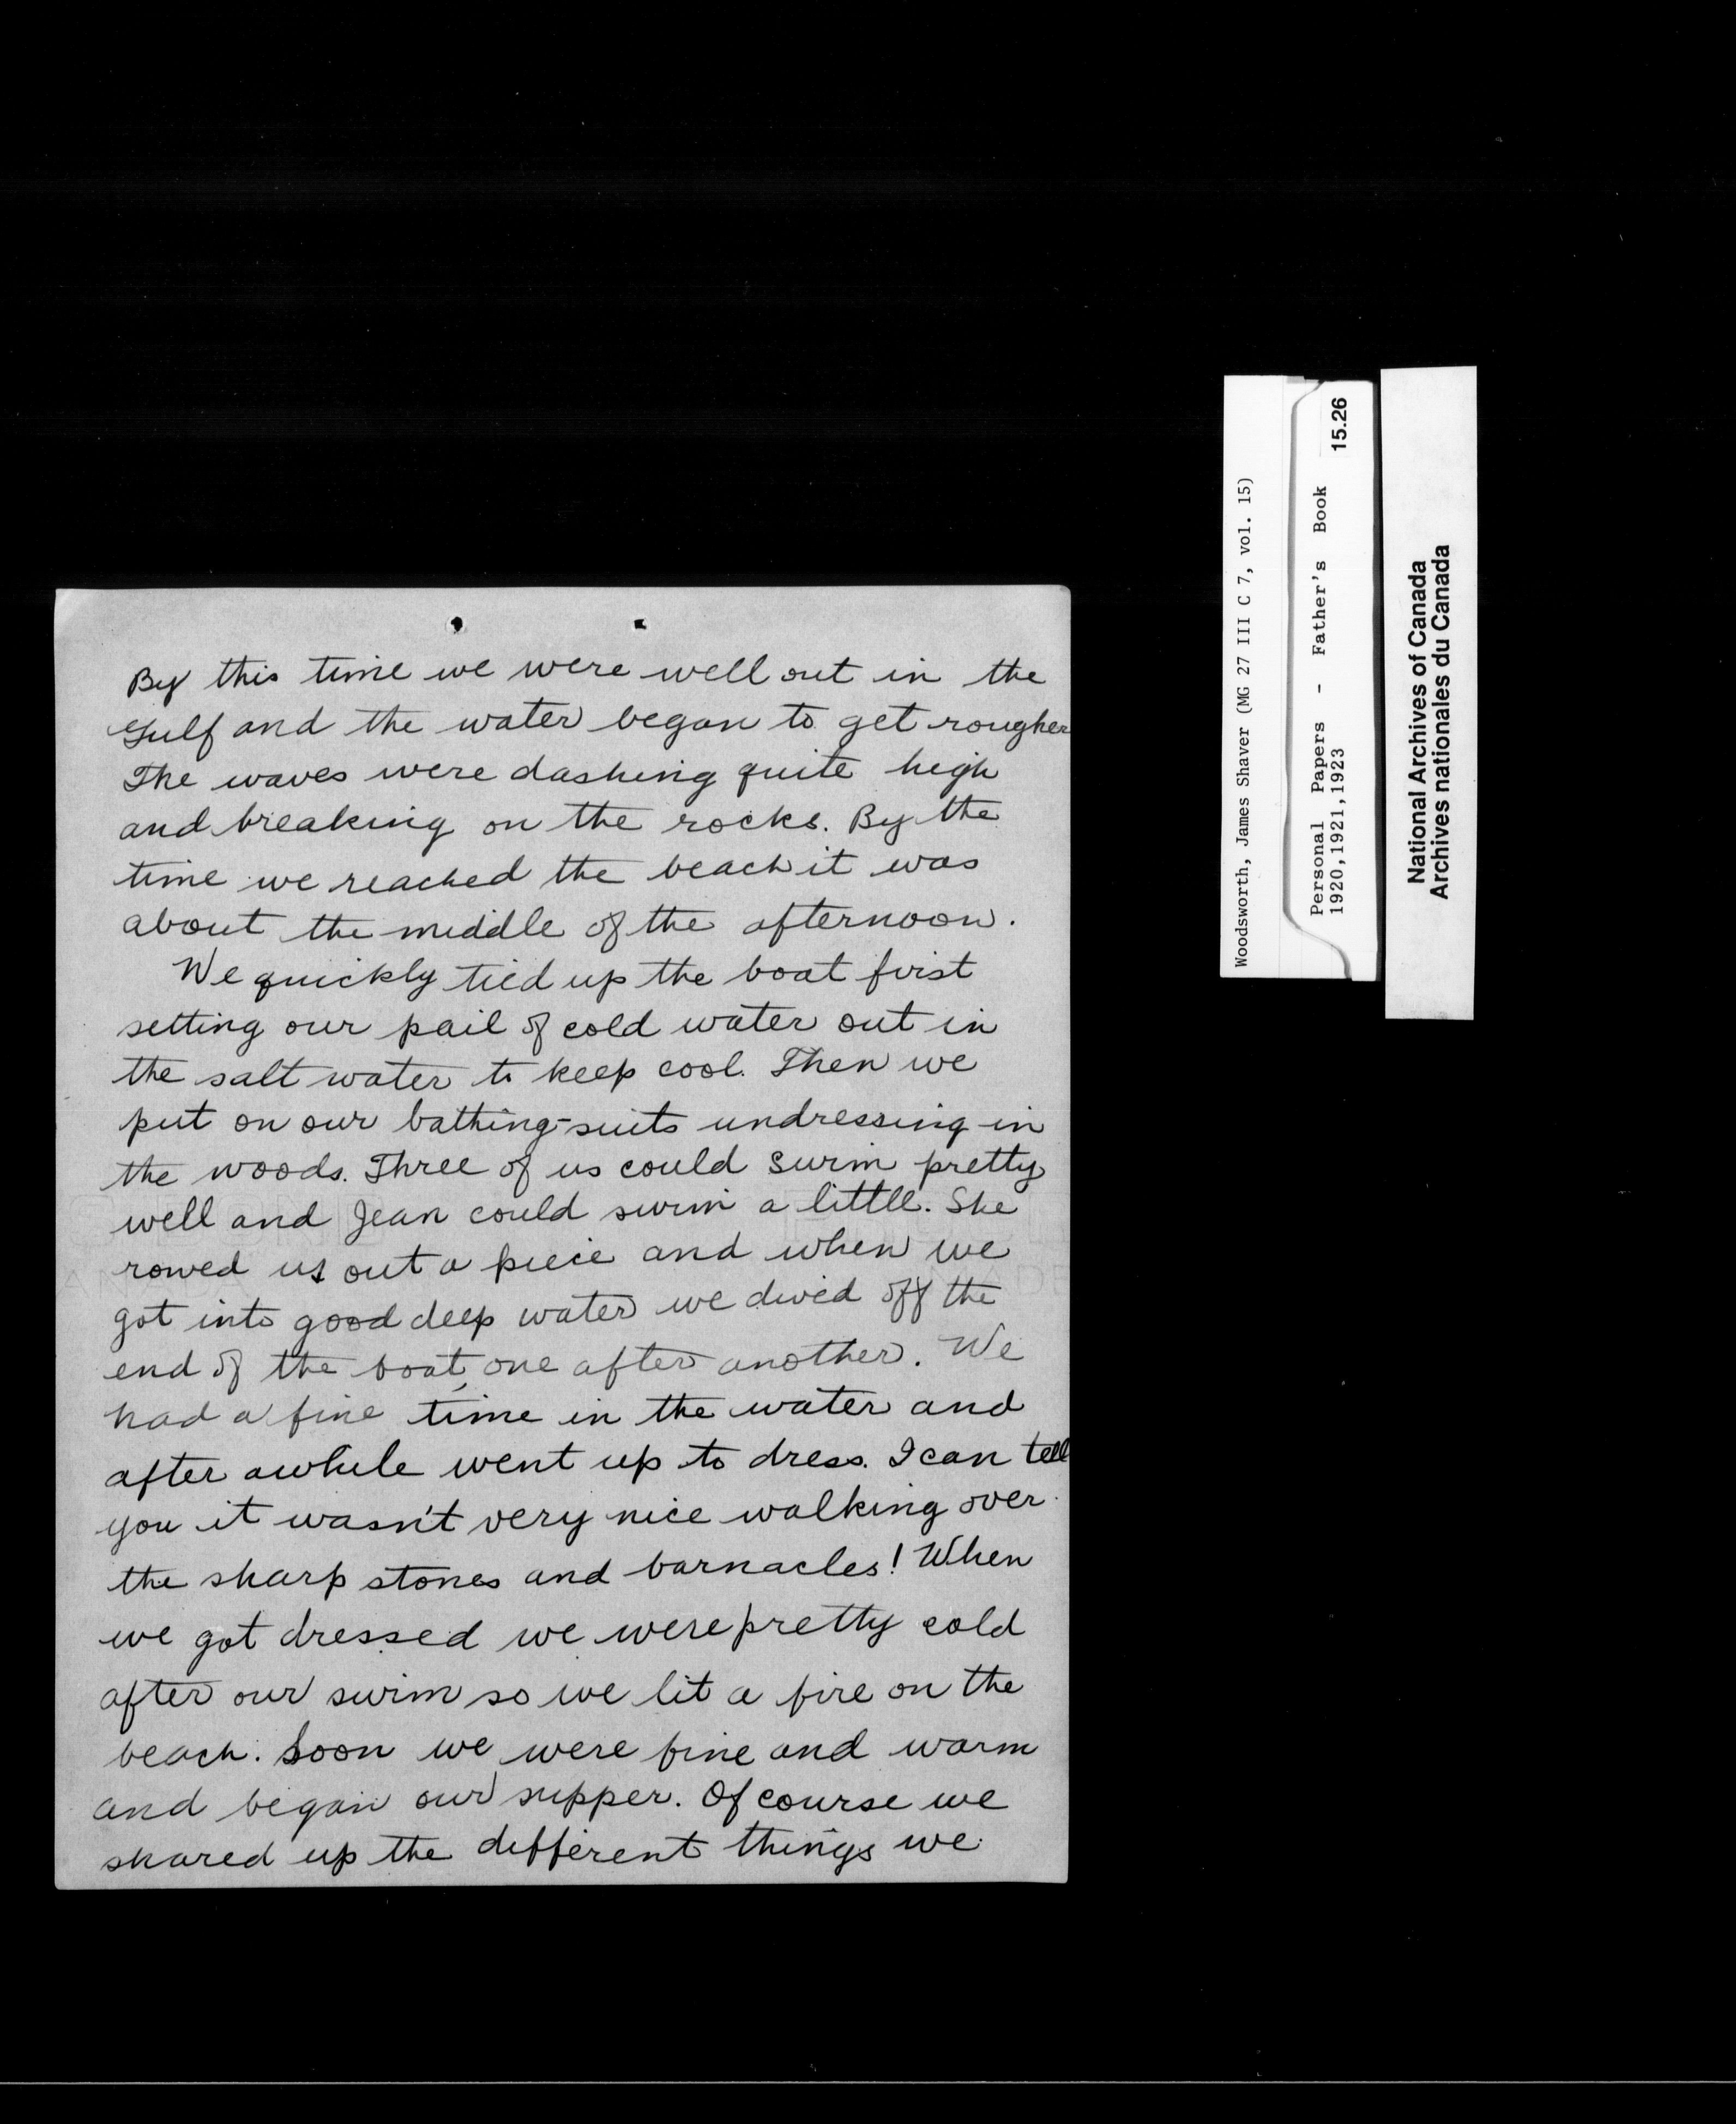 By this time we were well out in the
Gulf and the water began to get rougher
The waves were dashing quite high
and breaking on the rocks. By the
time we reached the beach it was
about the middle of the afternoon.
We quickly tied up the boat first
setting our pail of cold water out in
the salt water to keep cool. Then we
put on our bathing-suits undressing in
the woods. Three of us could swim pretty
well and Jean could swim a little. She
rowed us out a piece and when we
got into good deep water we dived off the
end of the boat, one after another. We
had a fine time in the water and
after awhile went up to dress. I can tell
you it wasn't very nice walking over
the sharp stones and barnacles! When
we got dressed we were pretty cold
after our swim so we lit a fire on the
beach. Soon we were fine and warm
and began our supper. Of course we
shared up the different things we
Woodsworth, James Shaver (MG 27 III C 7, vol. 15)
Personal Papers - Father's Book 15.26
1920,1921,1923
National Archives of Canada
Archives nationales du Canada